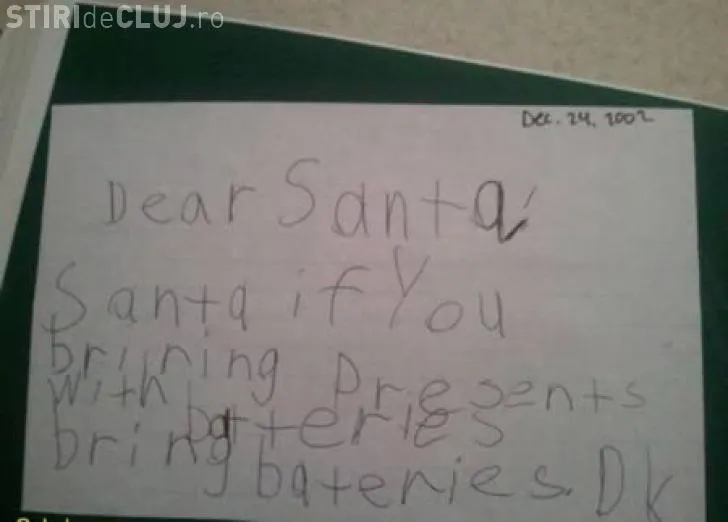 STIRIdeCLUJ.ro
Dec. 24, 2002
Dear Santa
Santa if You
briining Presents
with batteries
bring bateries. Dk